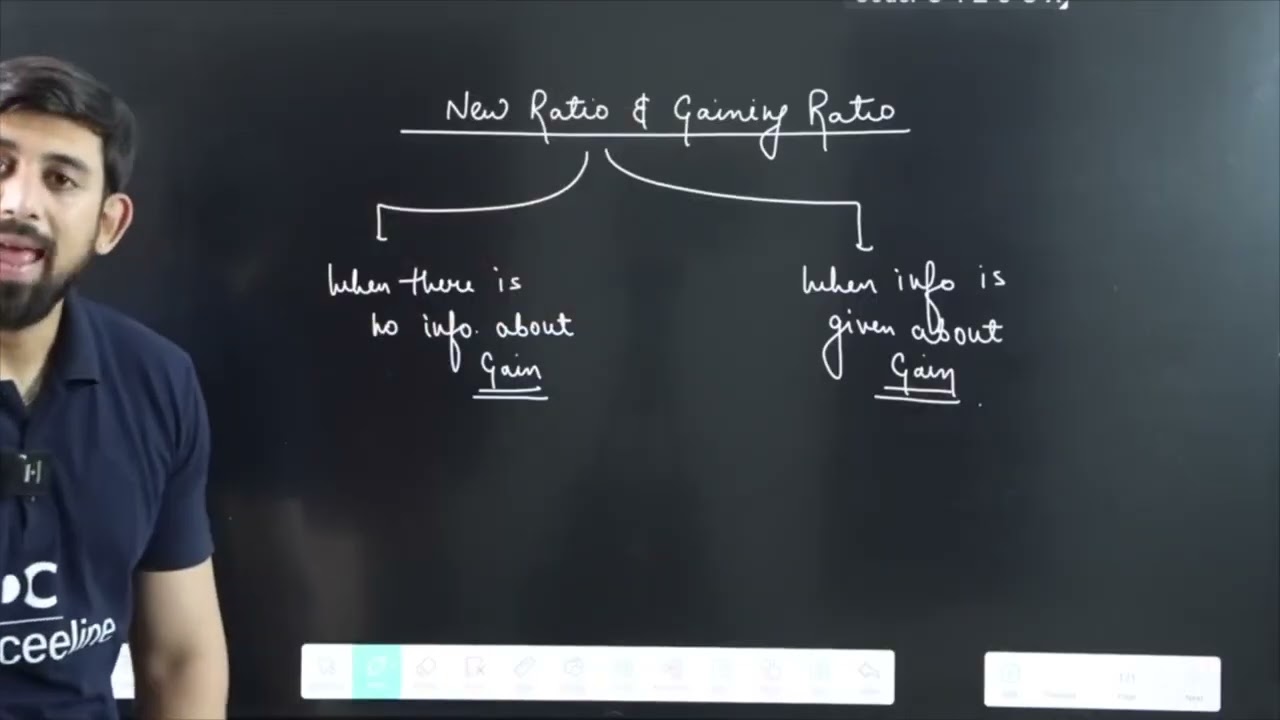 New Ratio & Gaining Ratio
When there is
no info. about
Gain
When info is
given about
Gain
ceeline
1/1